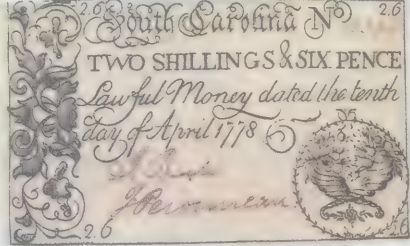 2.6 South Carolina No 2.6
TWO SHILLINGS & SIX PENCE
Lawful Money dated the tenth
day of April 1778
2.6 2.6